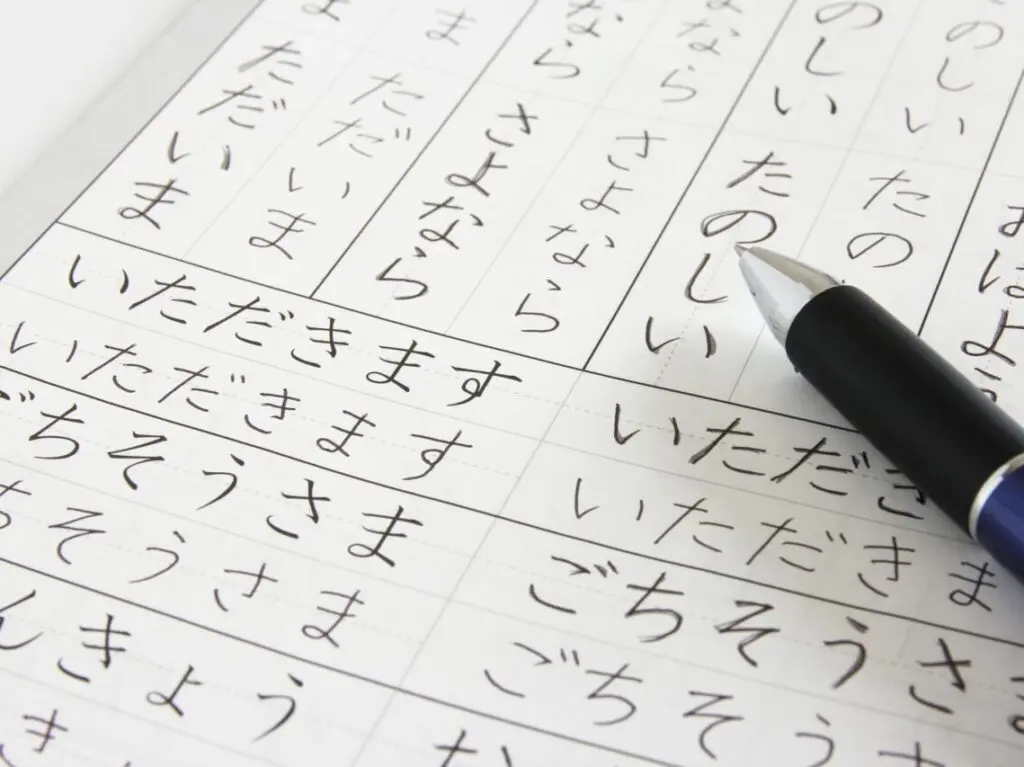 おはよ
のしい たの
のしい たのしい
なら さよなら
なら さよなら
ま ただいま
ま ただいま
いただきます いただき
いただきます いただきま
ちそうさま ごちそうさ
ちそうさま ごちそう
んきょう
き